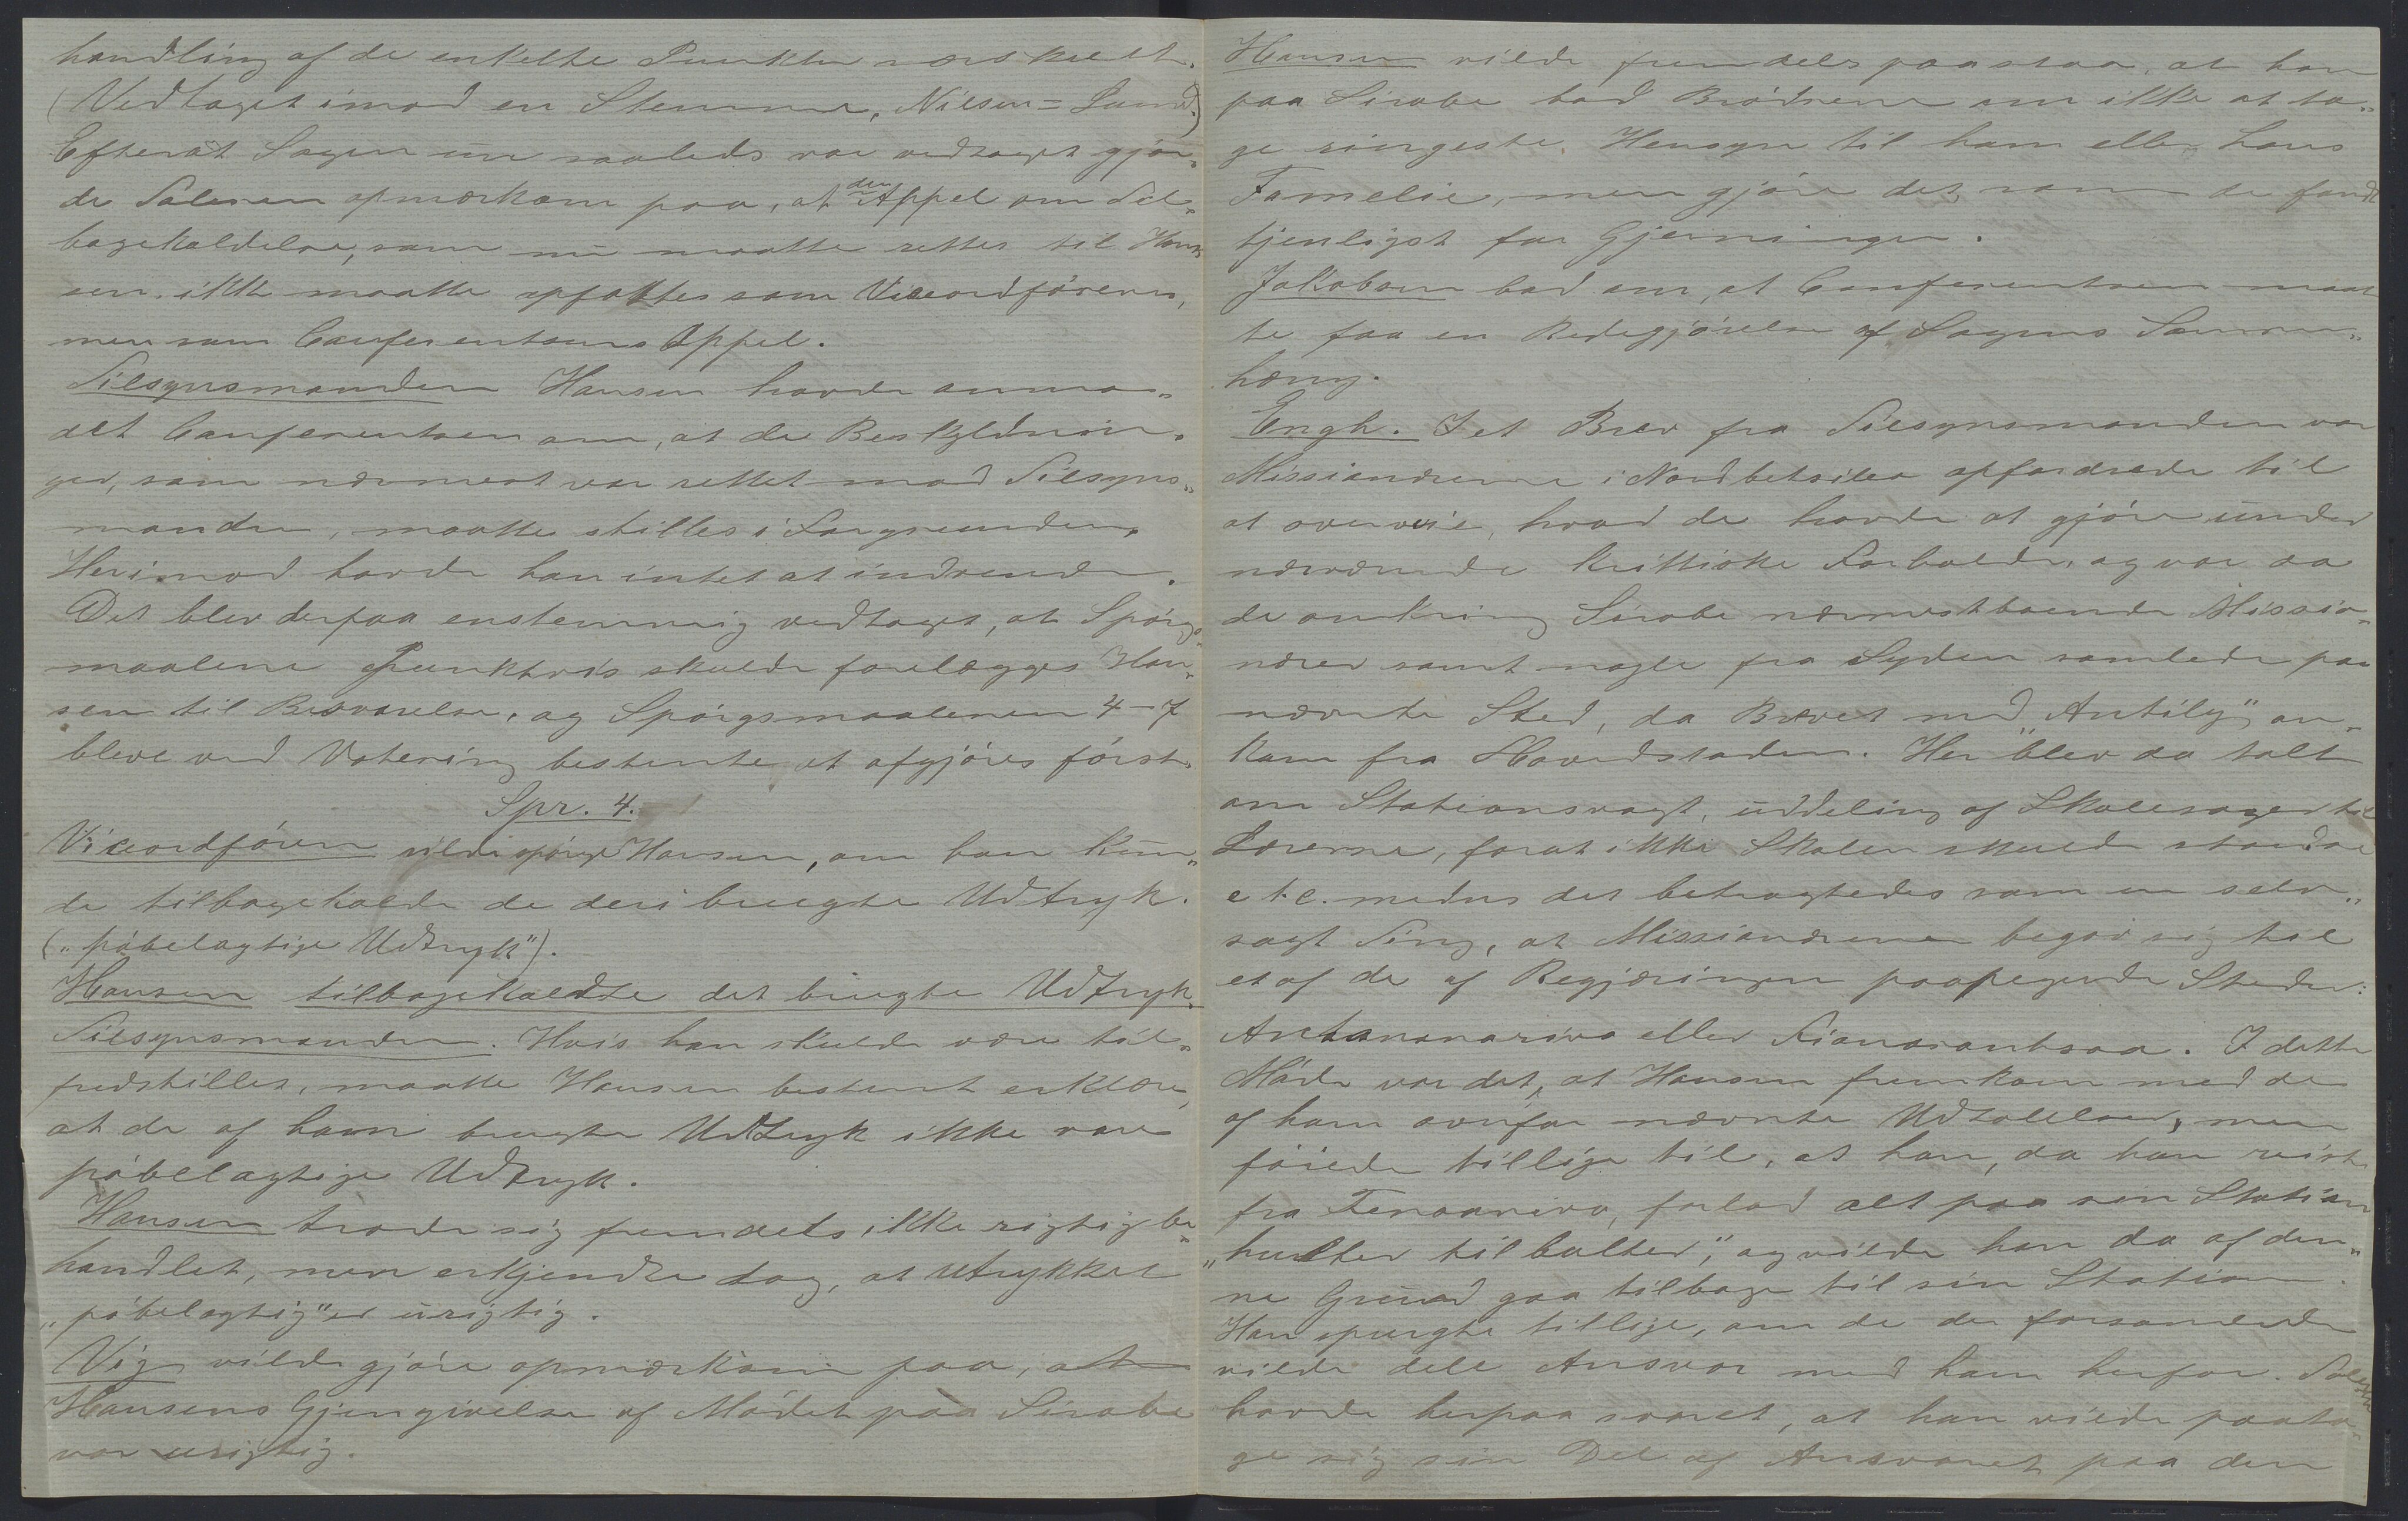 handling af de enkelte Punkter særskilt.
(Vedtaget imod en Stemme, Nielsen=Lund.)
Efterat Sagen nu saaledes var vedtaget gjor„
de Salesen opmærksom paa, at den Appel om Til„
bagekaldelse, som nu maatte rettes til Hans„
sen ikke maatte opfattes som Viceordførerens,
men som Conferentsens Appel.
Tilsynsmanden Hansen havde anmo„
det Conferentsen om, at de Beskyldnin„
ger, som nærmest var rettet mod Tilsyns„
manden, maatte stilles i Forgrunden.
Herimod havde han intet at indvende.
Det blev derpaa enstemmig vedtaget, at Spørgs„
maalene Punktvis skulde forelægges Han„
sen til Besvarelse, og Spørgsmaalenen 4–7
bleve ved Votering bestemte at afgjøres først.
Spr. 4.
Viceordføren vilde spørge Hansen, om han kun„
de tilbagekalde de deri brugte Udtryk.
(„pøbelagtige Udtryk").
Hansen tilbagekaldte det brugte Udtryk.
Tilsynsmanden. Hvis han skulde være til„
fredstillet, maatte Hansen bestemt erklære,
at de af ham brugte Udtryk ikke vare
pøbelagtige Udtryk.
Hansen troede sig fremdeles ikke rigtig be„
handlet, men erkjendte dog, at utrykket
„pøbelagtig" er urigtig.
Vig vilde gjøre opmærksom paa, at
Hansens Gjengivelse af Mødet paa Sirabe
var urigtig.
Hansen vilde fremdeles paastaa, at han
paa Sirabe bad Brødrene om ikke at ta„
ge ringeste Hensyn til ham eller hans
Famelie, men gjøre det, som de fandt
tjenligst for Gjerningen.
Jakobsen bad om, at Conferentsen maat
te faa en Redegjørelse af Sagens Sammen„
hæng.
Engh. I et Brev fra Tilsynsmanden var
Missionærerne i Nordbetsileo opfordrede til
at overveie, hvad de havde at gjøre under
nærværende kritiske Forholde, og var da
de omkring Sirabe nærmestboende Missio„
nærer samt nogle fra Syden samlede paa
nævnte Sted, da Brevet med „Antily" an„
kom fra Hovedstaden. Her blev da talt
om Stationsvagt, uddeling af Skolesager til
Lærerne, forat ikke Skolen skulde standse
e t.c. medens det betragtedes som en selv„
sagt Ting, at Missionærerne begav sig til
et af de af Regjæringen paapegede Steder:
Antananarivo eller Fianarantsoa. I dette
Møde var det, at Hansen fremkom med de
af ham ovenfor nævnte Udtalelser, men
føiede tillige til, at han, da han reiste
fra Fenoarivo, forlod alt paa sin Station
„hulter til bulter", og vilde han da af den„
ne Grund gaa tilbage til sin Station.
Han spurgte tillige, om de der forsamlede
vilde dele Ansvar med ham herfor.
havde herpaa svaret, at han vilde paata„
ge sig sin Del af Ansvaret paa den